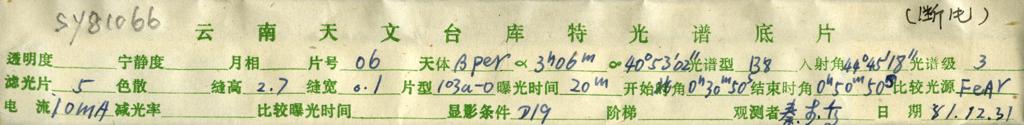 sy81066 (断电)
云南天文台库特光谱底片
透明度 宁静度 月相 片号 06 天体 β per α 3h06m α 40°53'02" 光谱型 B8 入射角 44°45'18" 光谱级 3
滤光片 5 色散 缝高 2.7 缝宽 0.1 片型 103a-O 曝光时间 20m 开始时角 0h30m50s 结束时角 0h50m50s 比较光源 FeAr
电流 10mA 减光率 比较曝光时间 显影条件 D19 阶梯 观测者 日期 81.12.31